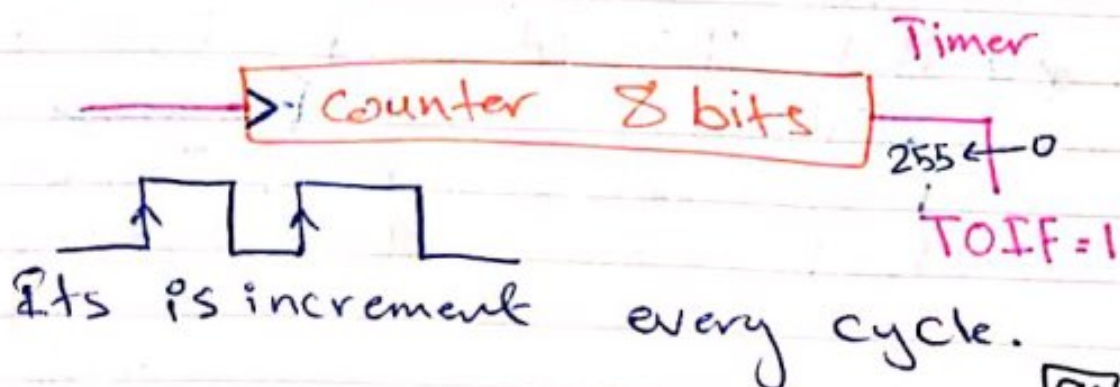 Timer
counter 8 bits
255 ← 0
TOIF = 1
Its is increment every cycle.